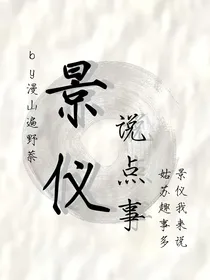 by漫山遍野茶
景仪
说点事
景仪我来说
姑苏趣事多